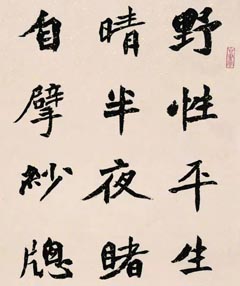 野性平生
晴半夜睹
自擘紗牕